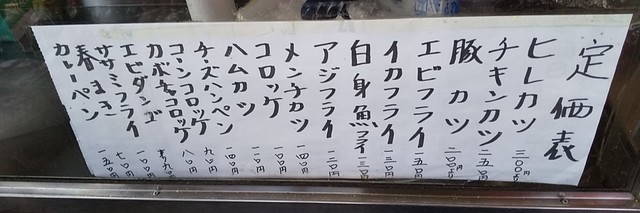 定価表
ヒレカツ 三〇〇円
チキンカツ 二五〇円
豚カツ 二〇〇円
エビフライ 一五〇円
イカフライ 一三〇円
白身魚フライ 一三〇円
アジフライ 一二〇円
メンチカツ 一四〇円
コロッケ 一〇〇円
ハムカツ 一四〇円
チーズハンペン 九〇円
コーンコロッケ 八〇円
カボチャコロッケ 九〇円
エビダンゴ 一〇〇円
ササミフライ 七〇円
春まき
カレーパン 一五〇円